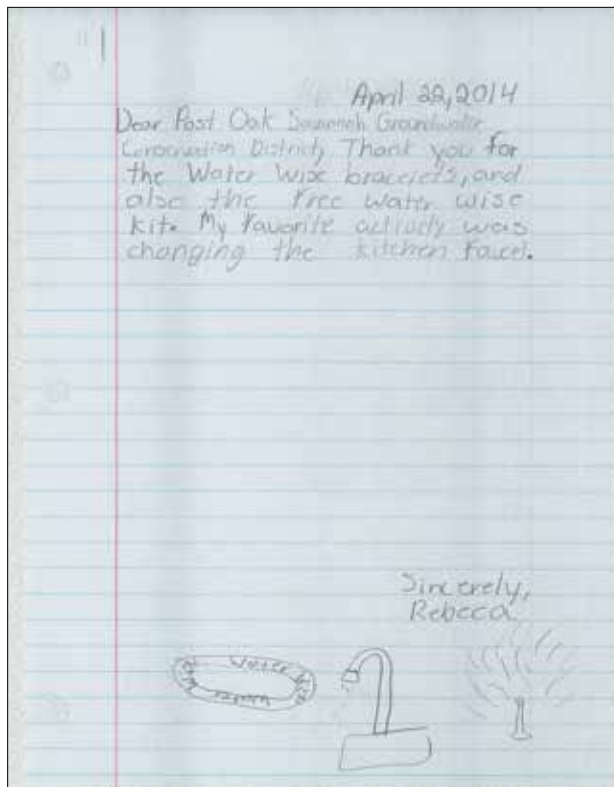 April 22, 2014
Dear Post Oak Savannah Groundwater
Conservation District, Thank you for
the Water Wise bracelets, and
also the free water wise
kit. My favorite activity was
changing the kitchen faucet.
Sincerely,
Rebeca
Water